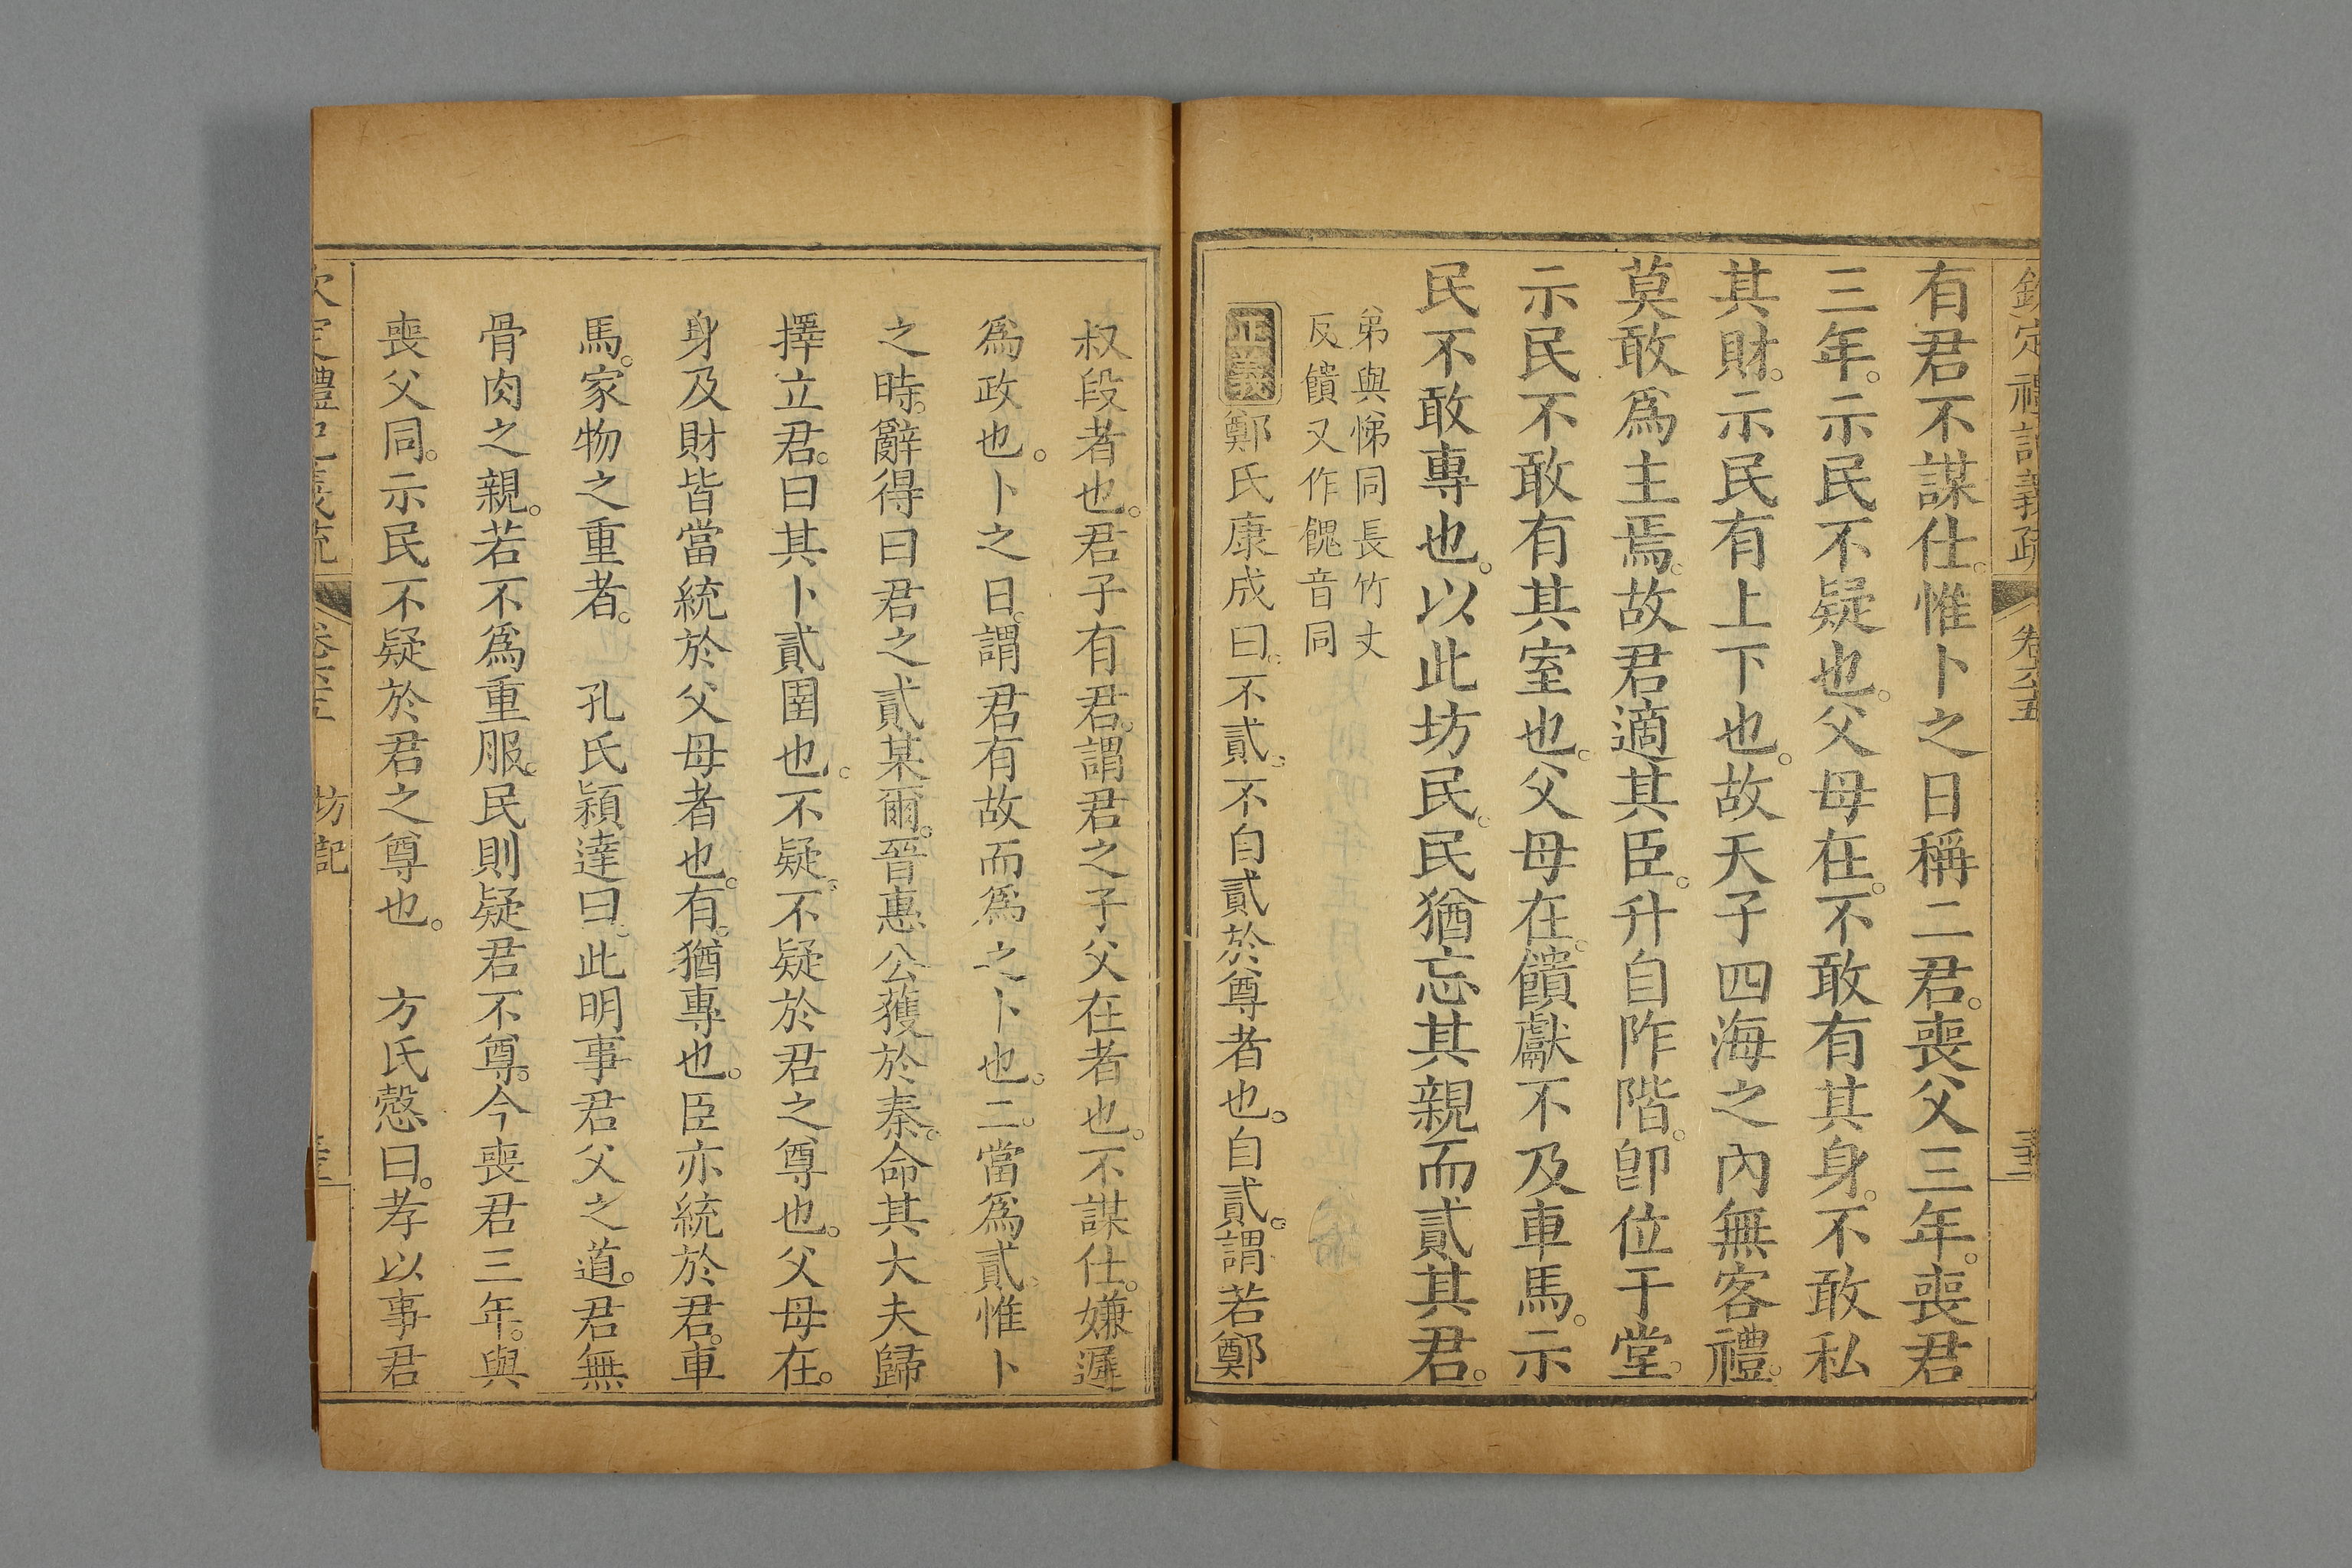 欽定禮記義疏 卷六十五
有君不謀仕。惟卜之日稱二君。喪父三年。喪君
三年。示民不疑也。父母在。不敢有其身。不敢私
其財。示民有上下也。故天子四海之內無客禮。
莫敢爲主焉。故君適其臣。升自阼階。卽位于堂。
示民不敢有其室也。父母在。饋獻不及車馬。示
民不敢專也。以此坊民。民猶忘其親而貳其君。
弟與悌同長竹丈
反饋又作餽音同
正義鄭氏康成曰。不貳。不自貳於尊者也。自貳。謂若鄭
叔段者也。君子有君。謂君之子父在者也。不謀仕。嫌遲
爲政也。卜之日。謂君有故而爲之卜也。二。當爲貳。惟卜
之時。辭得曰君之貳某爾。晉惠公獲於秦。命其大夫歸
擇立君。曰其卜貳圉也。不疑。不疑於君之尊也。父母在。
身及財皆當統於父母者也。有。猶專也。臣亦統於君。車
馬。家物之重者。 孔氏穎達曰。此明事君父之道。君無
骨肉之親。若不爲重服。民則疑君不尊。今喪君三年。與
喪父同。示民不疑於君之尊也。 方氏慤曰。孝以事君
欽定禮記義疏 卷六十五 坊記